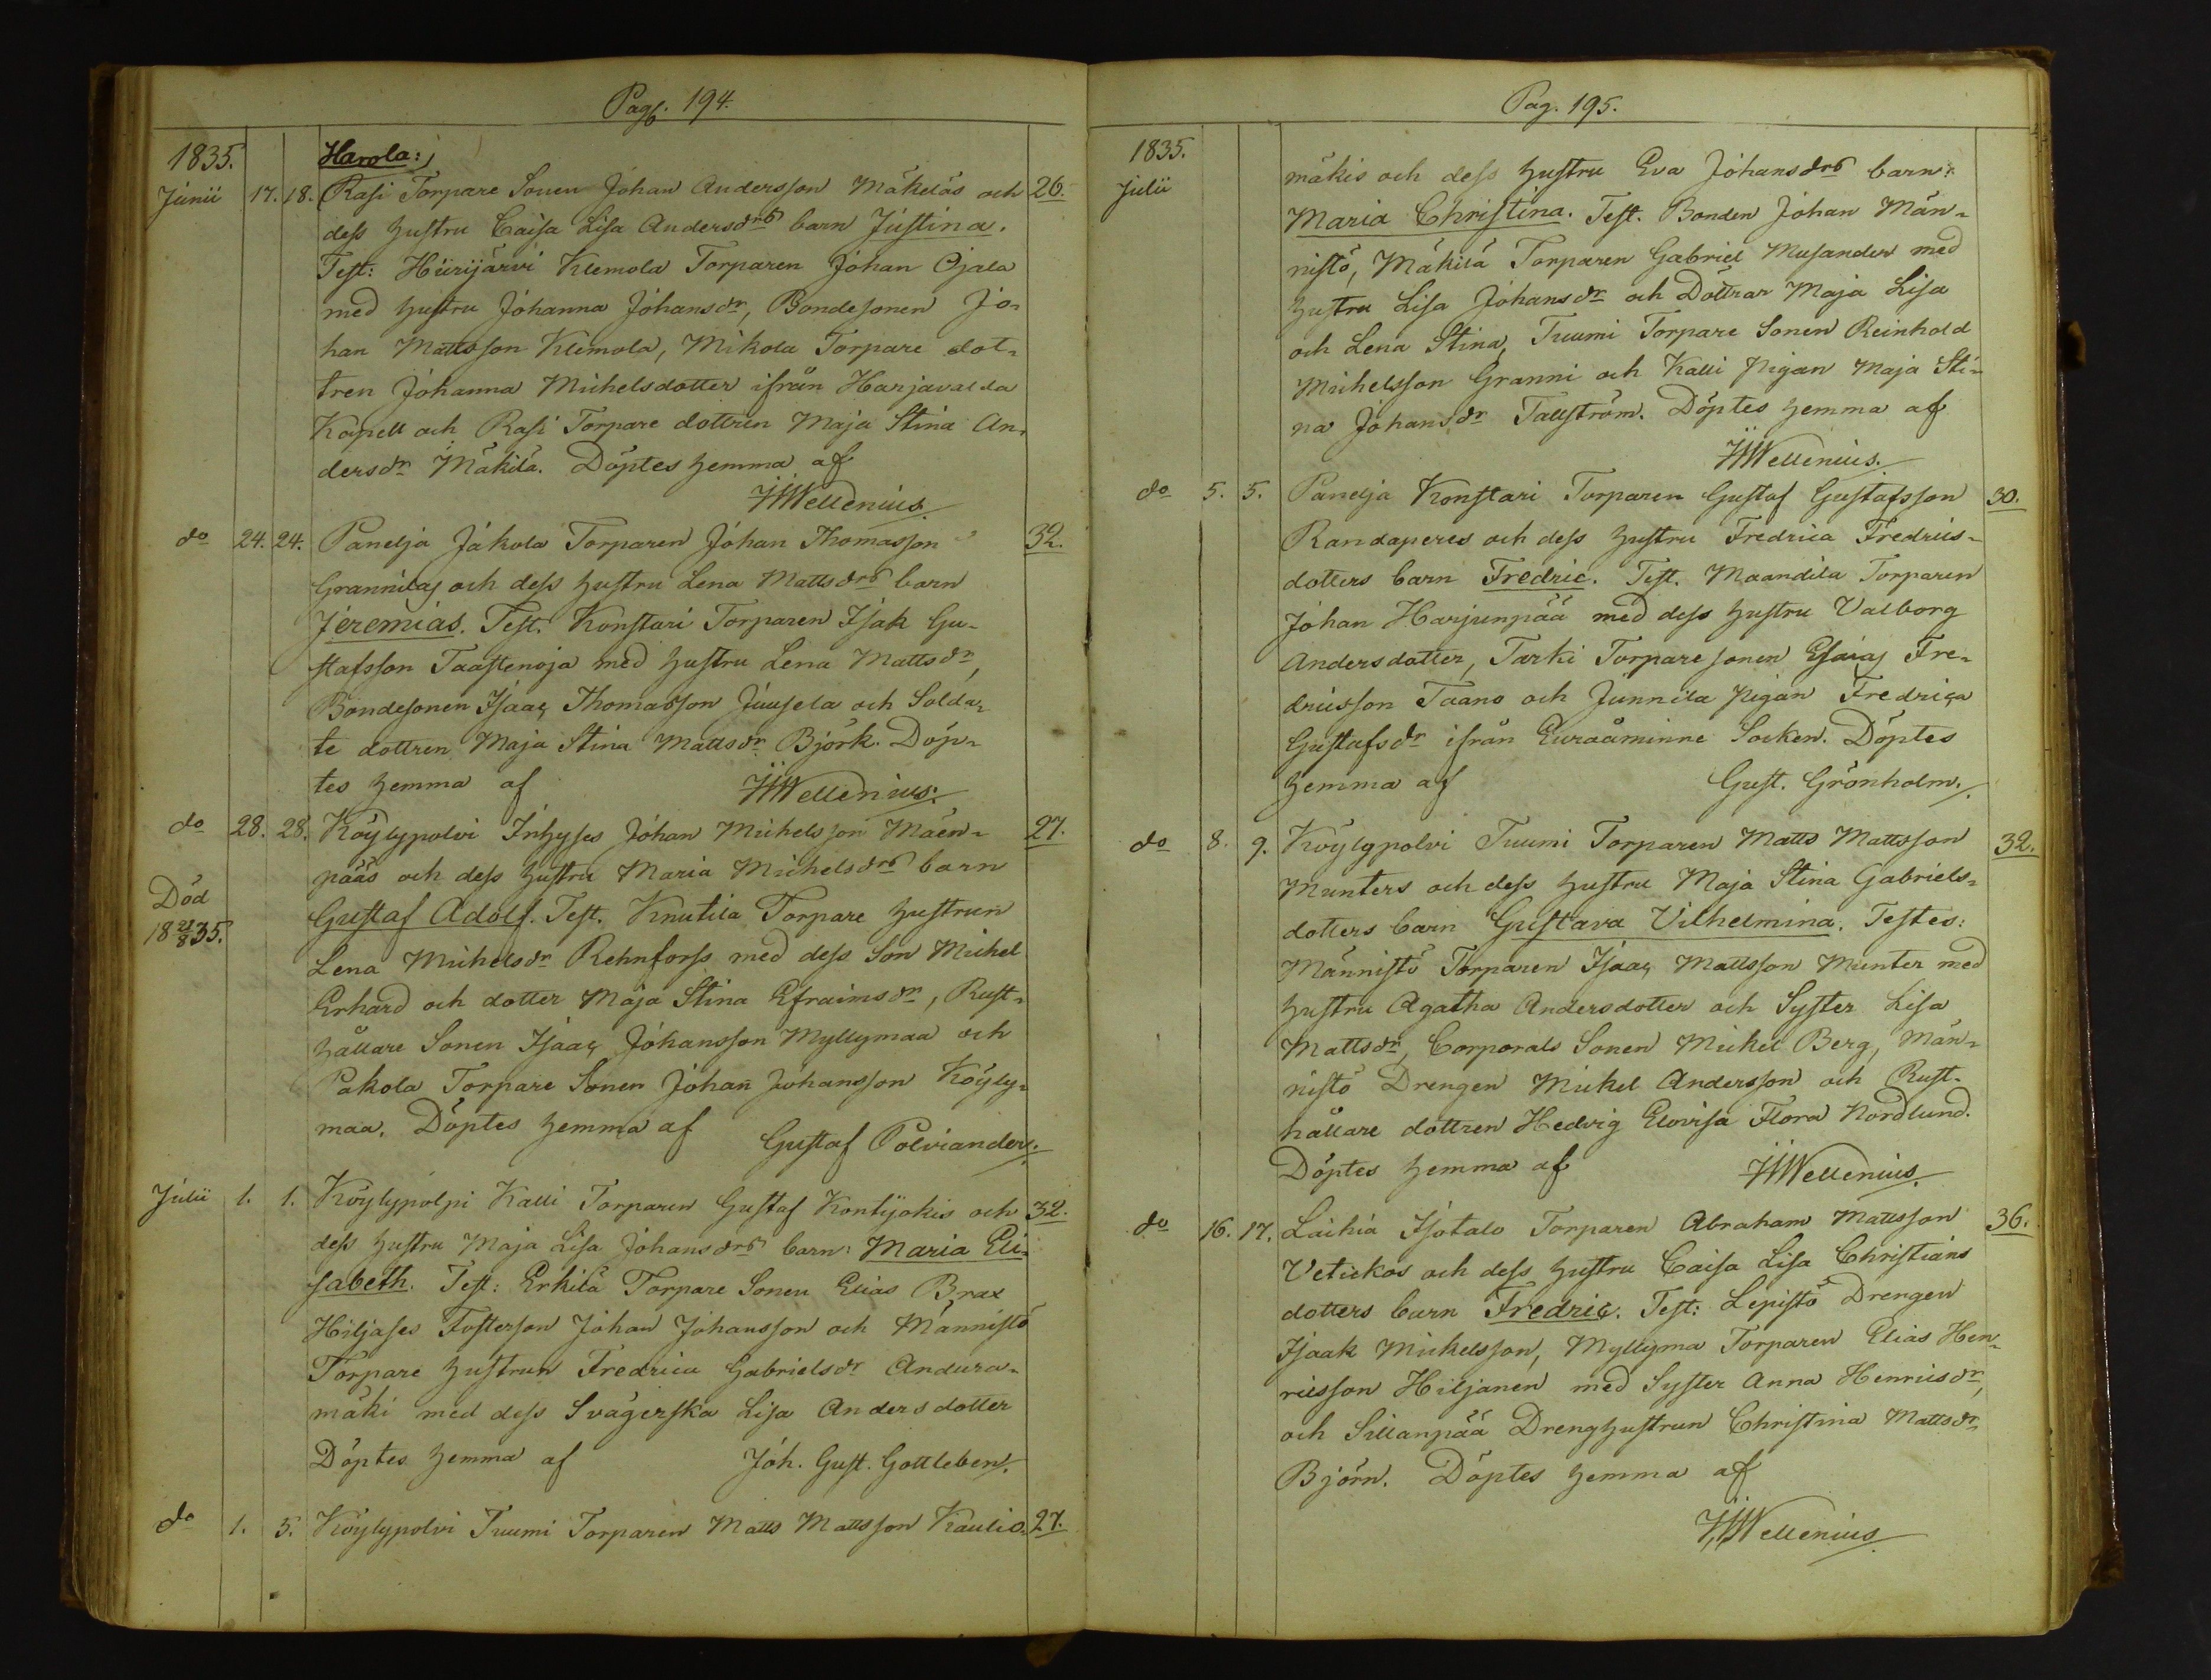 Pag. 194.
1835. Harola:
Junii 17. 18. Rasi Torpare Sonen Johan Andersson Mäkeläs och 26.
dess hustru Caisa Lisa Andersdrs barn Justina.
Test: Hiirijärvi Klemola Torparen Johan Ojala
med hustru Johanna Johansdr, Bondesonen Jo-
han Mattsson Klemola, Mikola Torpare dot-
tren Johanna Michelsdotter ifrån Harjavalda
Kapell och Rasi Torpare dottren Maja Stina An-
dersdr Mäkilä. Döptes hemma af
Wellenius.
do 24. 24. Panelja Jakola Torparen Johan Thomasson 32.
Grannilas och dess hustru Lena Mattsdrs barn
Jeremias. Test. Konstari Torparen Isak Gu-
stafsson Taastenoja med hustru Lena Mattsdr,
Bondesonen Isaac Thomasson Juusela och Solda-
te dottren Maja Stina Mattsdr Björk. Döp-
tes hemma af Wellenius.
do 28. 28. Köylypolvi Inhyses Johan Michelsson Mäen- 27.
pääs och dess hustru Maria Michelsdrs barn
Död Gustaf Adolf. Test. Knutila Torpare hustrun
18 21/8 35. Lena Michelsdr Rehnforss med dess Son Michel
Erhard och dotter Maja Stina Efraimsdr, Rust-
hållare Sonen Isaac Johansson Myllymaa och
Pakola Torpare Sonen Johan Johansson Köyly-
maa. Döptes hemma af Gustaf Polviander.
Julii 1. 1. Köylypolpi Kalli Torparen Gustaf Kontijokis och 32.
dess hustru Maja Lisa Johansdrs barn: Maria Eli-
sabeth. Test: Erkilä Torpare Sonen Elias Brax
Hiljases Fosterson Johan Johansson och Männistö
Torpare hustrun Fredrica Gabrielsdr Andura-
mäki med dess Svägerska Lisa Andersdotter
Döptes hemma af Joh. Gust. Gottleben.
do 1. 5. Köylypolvi Tuumi Torparen Matts Mattsson Kaulio- 27.
Pag. 195.
1835. mäkis och dess hustru Eva Johansdrs barn:
Julii Maria Christina. Test. Bonden Johan Män-
nistö, Mäkilä Torparen Gabriel Musander med
hustru Lisa Johansdr och Döttrar Maja Lisa
och Lena Stina, Tuumi Torpare Sonen Reinhold
Michelsson Granni och Kalli pigan Maja Sti-
na Johansdr Tallström. Döptes hemma af
Wellenius.
do 5. 5. Panelja Konstari Torparen Gustaf Gustafsson 30.
Randaperes och dess hustru Fredrica Fredrics-
dotters barn Fredric. Test. Maandila Torparen
Johan Harjunpää med dess hustru Valborg
Andersdotter, Tarki Torpare sonen Esaias Fre-
dricsson Taano och Junnila pigan Fredrica
Gustafsdr ifrån Euraåminne Socken. Döptes
hemma af Gust. Grönholm.
do 8. 9. Köylypolvi Tuumi Torparen Matts Mattsson 32.
Munters och dess hustru Maja Stina Gabriels-
dotters barn Gustava Vilhelmina. Testes:
Männistö Torparen Isaac Mattsson Munter med
hustru Agatha Andersdotter och Syster Lisa
Mattsdr, Corporals Sonen Mickel Berg, Män-
nistö Drengen Mickel Andersson och Rust-
hållare dottren Hedvig Elovisa Flora Nordlund.
Döptes hemma af Wellenius.
do 16. 17. Laihia Isotalo Torparen Abraham Mattsson 36.
Vetickos och dess hustru Caisa Lisa Christians
dotters barn Fredric. Test: Lepistö Drengen
Isaak Mickelsson, Myllyma Torparen Elias Hen-
ricsson Hiljanen med Syster Anna Henricsdr,
och Sillanpää Dreng hustrun Christina Mattsdr
Björn. Döptes hemma af
Wellenius